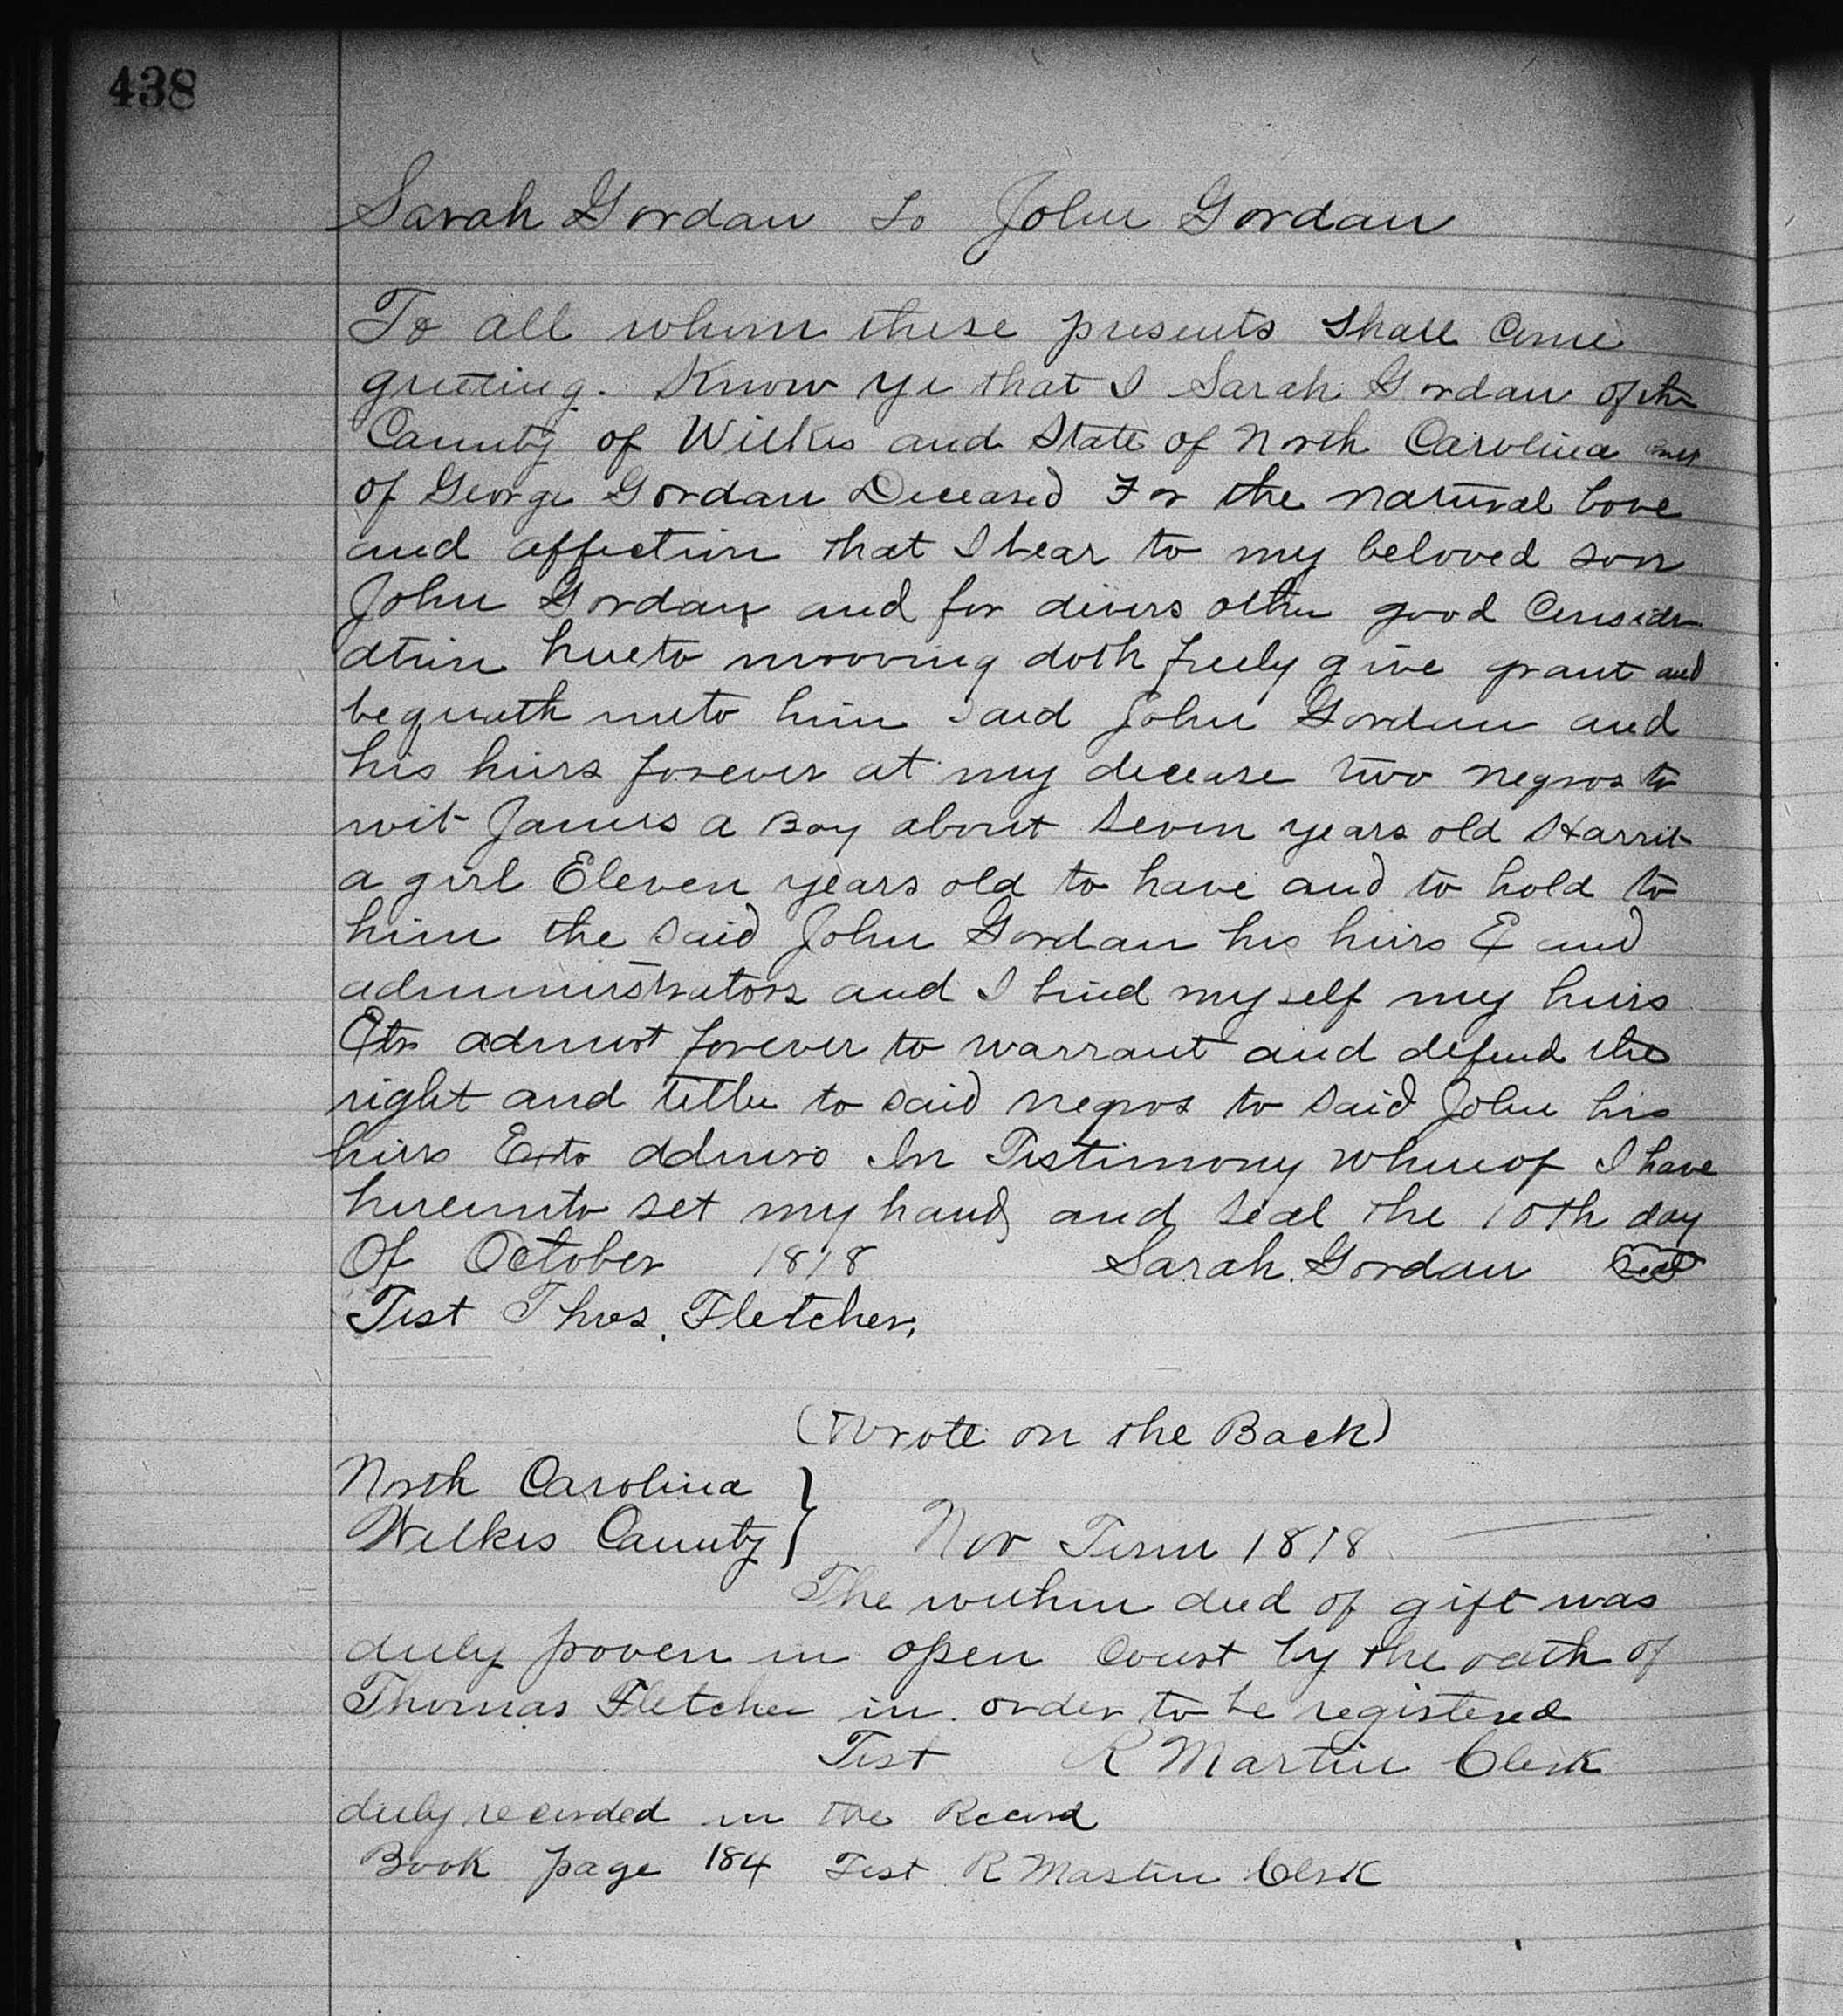 438
Sarah Gordan to John Gordan
To all whom these presents shall Come
greeting. Know ye that I Sarah Gordan of the
County of Wilkes and State of North Carolina
of George Gordan Deceased For the natural love
and affection that I bear to my beloved son
John Gordan and for divers other good Consider
ation hereto mooving doth freely give grant and
bequeath unto him said John Gordan and
his heirs forever at my decease two negros to
wit James a Boy about Seven years old Harrit
a girl Eleven years old to have and to hold to
him the said John Gordan his heirs E and
administrators and I bind myself my heirs
forever to warrant and defend the
right and title to said negros to said John his
heirs In Testimony whereof I have
hereunto set my hand and seal the 10th day
Of October 1818 Sarah Gordan Seal
Test Thos. Fletcher,
(Wrote on the Back)
North Carolina
Wilkes County } Nov Term 1818
The within deed of gift was
duly proven in open Court by the oath of
Thomas Fletcher in order to be registered
Test R Martin Clerk
duly recorded in the Record
Book page 184 Test R Martin Clerk